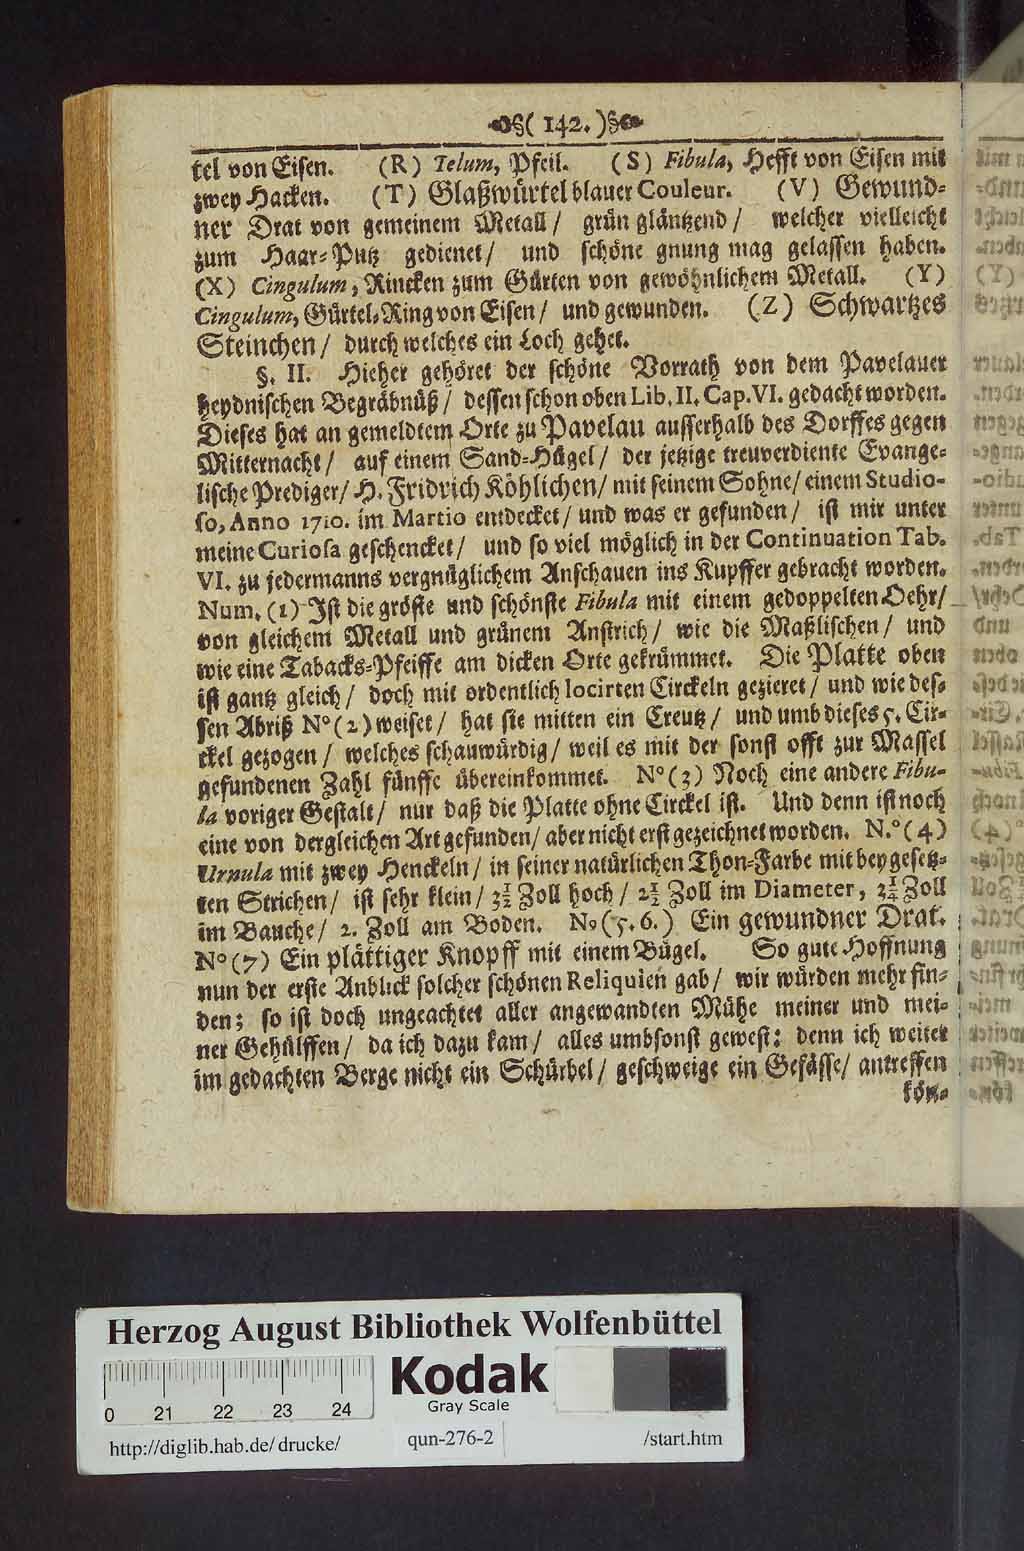 §( 142. )§
tel von Eisen. (R) Telum, Pfeil. (S) Fibula, Hefft von Eisen mit
zwey Hacken. (T) Glaßwürtel blauer Couleur. (V) Gewund-
ner Drat von gemeinem Metall / grün gläntzend / welcher vielleicht
zum Haar-Putz gedienet / und schöne gnung mag gelassen haben.
(X) Cingulum, Rincken zum Gürten von gewöhnlichem Metall. (Y)
Cingulum, Gürtel-Ring von Eisen / und gewunden. (Z) Schwartzes
Steinchen / durch welches ein Loch gehet.
§. II. Hieher gehöret der schöne Vorrath von dem Pavelauer
heydnischen Begräbnüß / dessen schon oben Lib. II. Cap. VI. gedacht worden.
Dieses hat an gemeldtem Orte zu Pavelau ausserhalb des Dorffes gegen
Mitternacht / auf einem Sand-Hügel / der jetzige treuverdiente Evange-
lische Prediger / H. Fridrich Köhlichen / mit seinem Sohne / einem Studio-
so, Anno 1710. im Martio entdecket / und was er gefunden / ist mir unter
meine Curiosa geschencket / und so viel möglich in der Continuation Tab.
VI. zu jedermanns vergnüglichem Anschauen ins Kupffer gebracht worden.
Num. (1) Ist die gröste und schönste Fibula mit einem gedoppelten Oehr /
von gleichem Metall und grünem Anstrich / wie die Maßlischen / und
wie eine Tabacks-Pfeiffe am dicken Orte gekrümmet. Die Platte oben
ist gantz gleich / doch mit ordentlich locirten Circkeln gezieret / und wie des-
sen Abriß N° (2) weiset / hat sie mitten ein Creutz / und umb dieses 5. Cir-
ckel gezogen / welches schauwürdig / weil es mit der sonst offt zur Massel
gefundenen Zahl fünffe übereinkommet. N° (3) Noch eine andere Fibu-
la voriger Gestalt / nur daß die Platte ohne Circkel ist. Und denn ist noch
eine von dergleichen Art gefunden / aber nicht erst gezeichnet worden. N.° (4)
Urnula mit zwey Henckeln / in seiner natürlichen Thon-Farbe mit beygesetz-
ten Strichen / ist sehr klein / 3½ Zoll hoch / 2½ Zoll im Diameter, 3¼ Zoll
im Bauche / 2. Zoll am Boden. No (5. 6.) Ein gewundner Drat.
N° (7) Ein plättiger Knopff mit einem Bügel. So gute Hoffnung
nun der erste Anblick solcher schönen Reliquien gab / wir würden mehr fin-
den; so ist doch ungeachtet aller angewandten Mühe meiner und mei-
ner Gehülffen / da ich dazu kam / alles umbsonst gewest: denn ich weiter
im gedachten Berge nicht ein Schürbel / geschweige ein Gefässe / antreffen
kön-
Herzog August Bibliothek Wolfenbüttel
Kodak
Gray Scale
0 21 22 23 24
http://diglib.hab.de/drucke/ qun-276-2 /start.htm